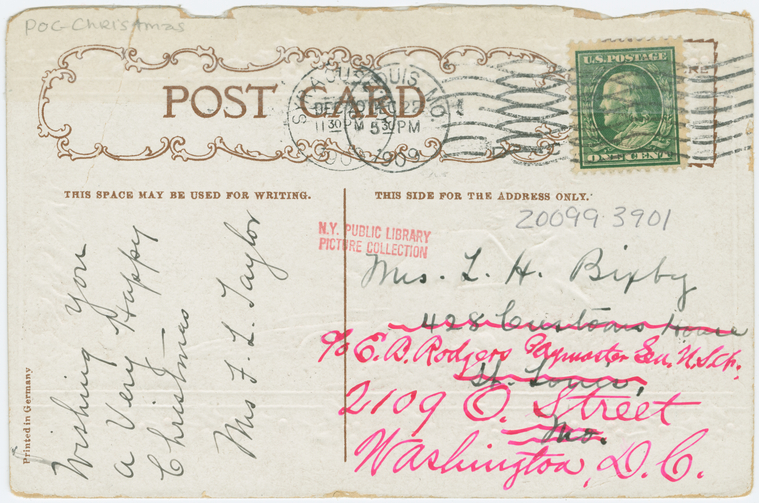 POC-Christmas
POST CARD
U.S. POSTAGE
ONE CENT
ST. LOUIS, MO.
1909
THIS SPACE MAY BE USED FOR WRITING.
THIS SIDE FOR THE ADDRESS ONLY.
20099·3901
N.Y. PUBLIC LIBRARY
PICTURE COLLECTION
Wishing you
a Very Happy
Christmas
Mrs F. L. Taylor
Mrs. L. H. Bixby
428 Customs House
c/o E. B. Rodgers Paymaster
St. Louis,
2109 O. Street
Mo.
Washington, D.C.
Printed in Germany